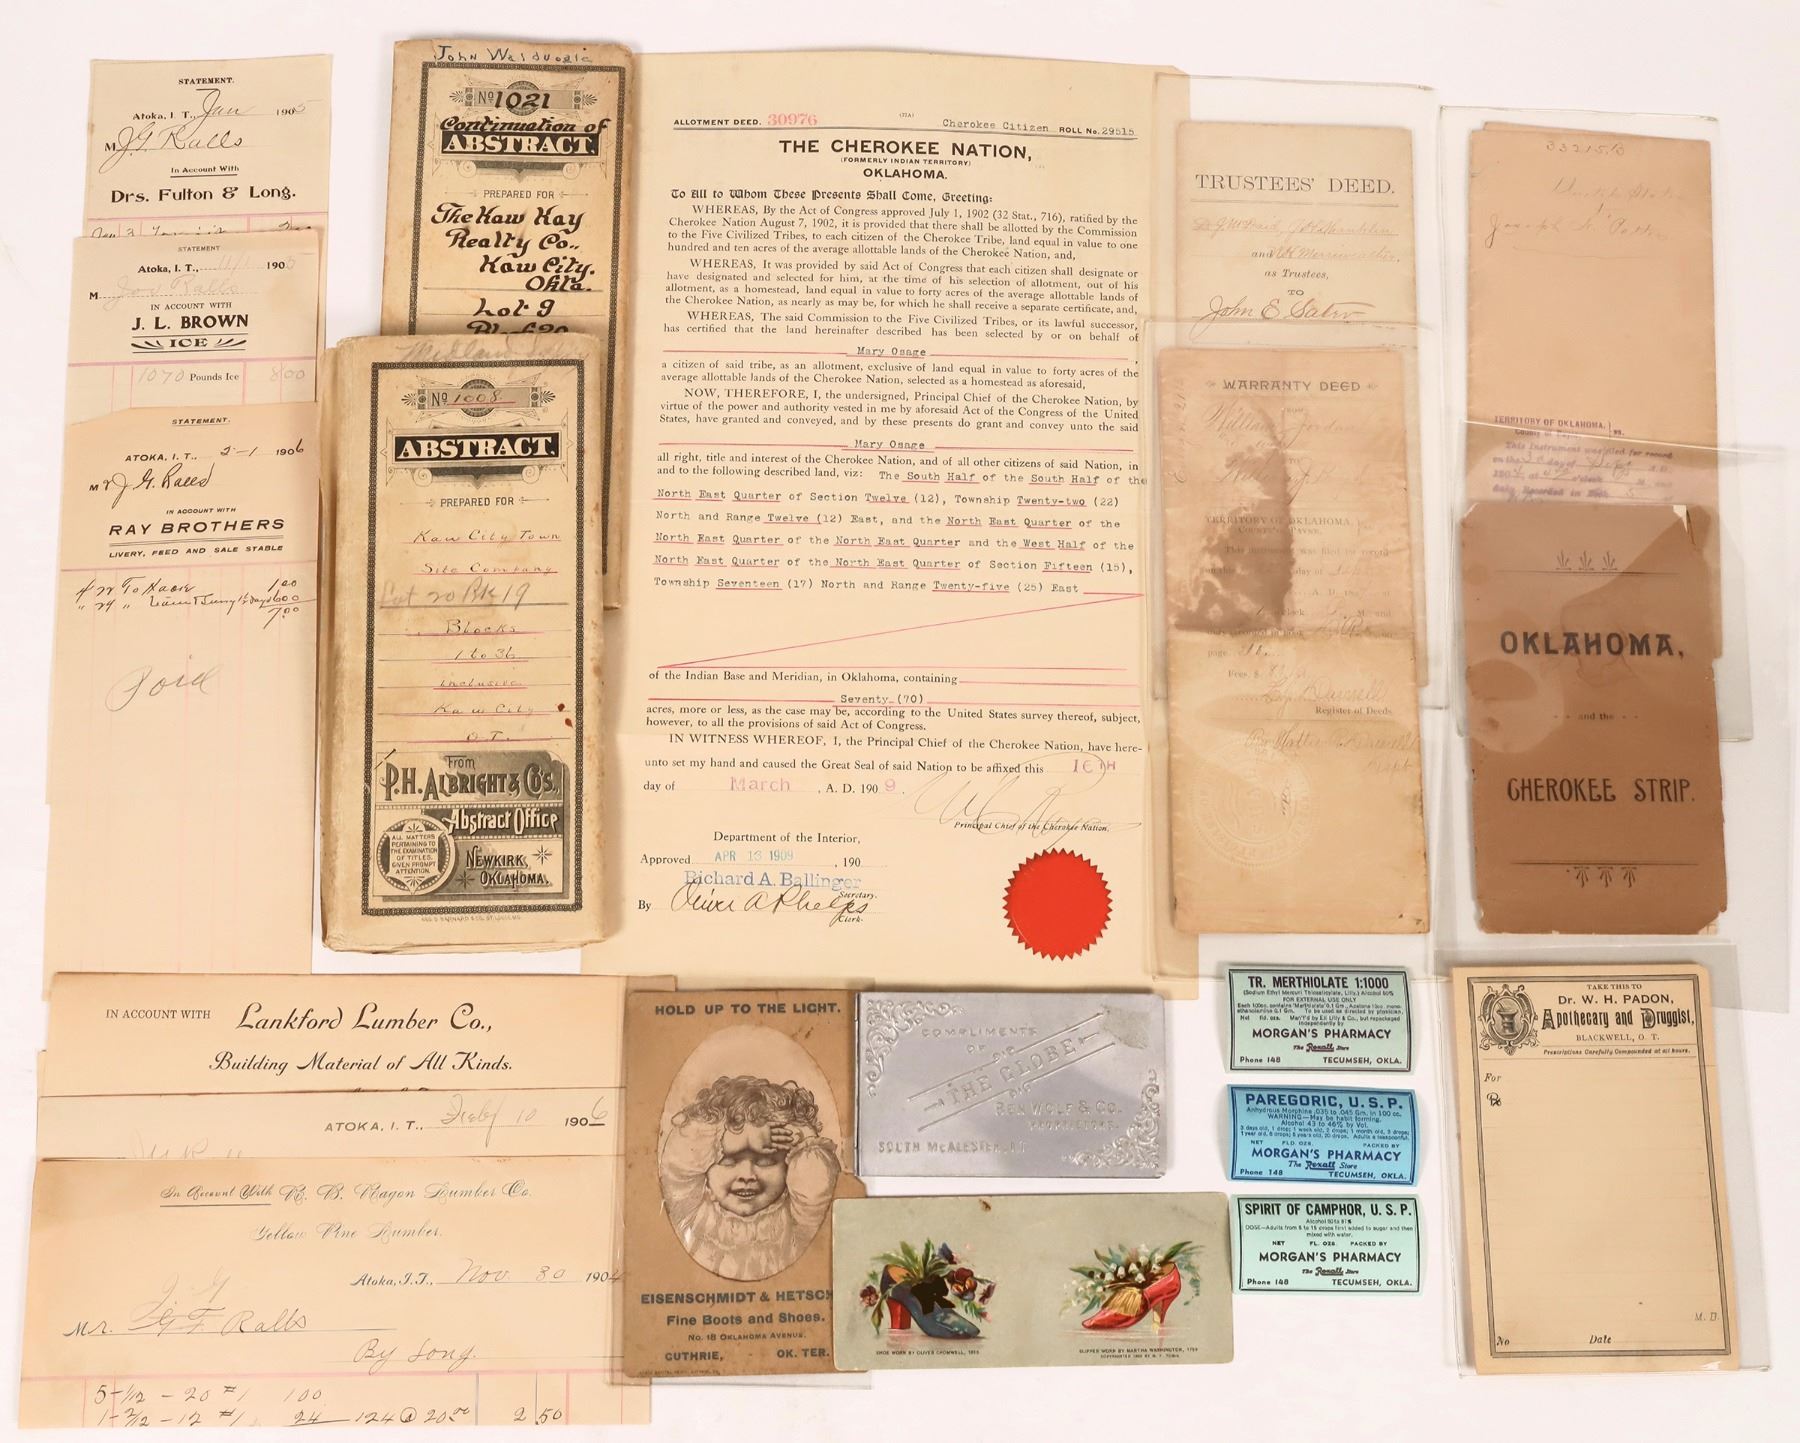 STATEMENT.
Atoka, I. T., Jan 1905
M J. G. Ralls
In Account With
Drs. Fulton & Long.
STATEMENT
Atoka, I. T., 11/1 1905
M Joe Ralls
IN ACCOUNT WITH
J. L. BROWN
ICE
1070 Pounds Ice 8.00
STATEMENT.
ATOKA, I. T., 2-1 1906
M J. G. Ralls
IN ACCOUNT WITH
RAY BROTHERS
LIVERY, FEED AND SALE STABLE
1.00
6.00
7.00
Paid
IN ACCOUNT WITH Lankford Lumber Co.,
Building Material of All Kinds.
ATOKA, I. T., Feby 10 1906
In Account With R. B. Ragon Lumber Co.
Yellow Pine Lumber.
Atoka, I. T., Nov. 30 190
J. G
Mr. G F Ralls
By Long.
5-1/12 - 20 #1 100
1-2/12 - 12 #1 24 124 @ 20.00 2 50
No 1021
Continuation of
ABSTRACT.
PREPARED FOR
The Kaw Kay
Realty Co.,
Kaw City,
Okla.
Lot 9
No 1008
ABSTRACT.
PREPARED FOR
Kaw City Town
Site Company
Lot 20 Bk 19
Blocks
1 to 36
inclusive
Kaw City
O.T.
From
P.H. ALBRIGHT & CO'S.,
Abstract Office
ALL MATTERS
PERTAINING TO
THE EXAMINATION
OF TITLES,
GIVEN PROMPT
ATTENTION.
NEWKIRK,
OKLAHOMA.
ALLOTMENT DEED. 30976 Cherokee Citizen ROLL No. 29515
THE CHEROKEE NATION,
(FORMERLY INDIAN TERRITORY)
OKLAHOMA.
To All to Whom These Presents Shall Come, Greeting:
WHEREAS, By the Act of Congress approved July 1, 1902 (32 Stat., 716), ratified by the
Cherokee Nation August 7, 1902, it is provided that there shall be allotted by the Commission
to the Five Civilized Tribes, to each citizen of the Cherokee Tribe, land equal in value to one
hundred and ten acres of the average allottable lands of the Cherokee Nation, and,
WHEREAS, It was provided by said Act of Congress that each citizen shall designate or
have designated and selected for him, at the time of his selection of allotment, out of his
allotment, as a homestead, land equal in value to forty acres of the average allottable lands of
the Cherokee Nation, as nearly as may be, for which he shall receive a separate certificate, and,
WHEREAS, The said Commission to the Five Civilized Tribes, or its lawful successor,
has certified that the land hereinafter described has been selected by or on behalf of
Mary Osage
a citizen of said tribe, as an allotment, exclusive of land equal in value to forty acres of the
average allottable lands of the Cherokee Nation, selected as a homestead as aforesaid,
NOW, THEREFORE, I, the undersigned, Principal Chief of the Cherokee Nation, by
virtue of the power and authority vested in me by aforesaid Act of the Congress of the United
States, have granted and conveyed, and by these presents do grant and convey unto the said
Mary Osage
all right, title and interest of the Cherokee Nation, and of all other citizens of said Nation, in
and to the following described land, viz: The South Half of the South Half of the
North East Quarter of Section Twelve (12), Township Twenty-two (22)
North and Range Twelve (12) East, and the North East Quarter of the
North East Quarter of the North East Quarter and the West Half of the
North East Quarter of the North East Quarter of Section Fifteen (15),
Township Seventeen (17) North and Range Twenty-five (25) East
of the Indian Base and Meridian, in Oklahoma, containing
Seventy (70)
acres, more or less, as the case may be, according to the United States survey thereof, subject,
however, to all the provisions of said Act of Congress.
IN WITNESS WHEREOF, I, the Principal Chief of the Cherokee Nation, have here-
unto set my hand and caused the Great Seal of said Nation to be affixed this 16TH
day of March, A. D. 1909.
Principal Chief of the Cherokee Nation.
Department of the Interior,
Approved APR 13 1909, 190
Richard A. Ballinger
Secretary.
By Oliver A Phelps
Clerk.
TRUSTEES' DEED.
and
as Trustees,
TO
John E.
WARRANTY DEED
FROM
William Jordan
TO
TERRITORY OF OKLAHOMA,
COUNTY OF PAYNE
This instrument was filed for record
page
Fees, $
Register of Deeds.
33215 B
Joseph
TERRITORY OF OKLAHOMA, ss.
This Instrument was filed for record
OKLAHOMA,
and the
CHEROKEE STRIP.
HOLD UP TO THE LIGHT.
EISENSCHMIDT & HETSCH
Fine Boots and Shoes.
No. 18 OKLAHOMA AVENUE.
GUTHRIE, - OK. TER.
COMPLIMENTS
OF
THE GLOBE
REN WOLF & CO.
PROPRIETORS.
SOUTH McALESTER, I.T
SHOE WORN BY OLIVER CROMWELL, 1655
SLIPPER WORN BY MARTHA WASHINGTON, 1759
TR. MERTHIOLATE 1:1000
(Sodium Ethyl Mercuri Thiosalicylate, Lilly.) Alcohol 50%
FOR EXTERNAL USE ONLY
MORGAN'S PHARMACY
The Rexall Store
Phone 148 TECUMSEH, OKLA.
PAREGORIC, U. S. P.
Anhydrous Morphine .035 to .045 Gm. in 100 cc.
WARNING—May be habit forming.
Alcohol 43 to 46% by Vol.
NET FLD. OZS. PACKED BY
MORGAN'S PHARMACY
The Rexall Store
Phone 148 TECUMSEH, OKLA.
SPIRIT OF CAMPHOR, U. S. P.
DOSE—Adults from 5 to 15 drops first added to sugar and then
mixed with water.
NET FL. OZS. PACKED BY
MORGAN'S PHARMACY
The Rexall Store
Phone 148 TECUMSEH, OKLA.
TAKE THIS TO
Dr. W. H. PADON,
Apothecary and Druggist,
BLACKWELL, O. T.
Prescriptions Carefully Compounded at all hours.
For
Rx
M. D.
No Date